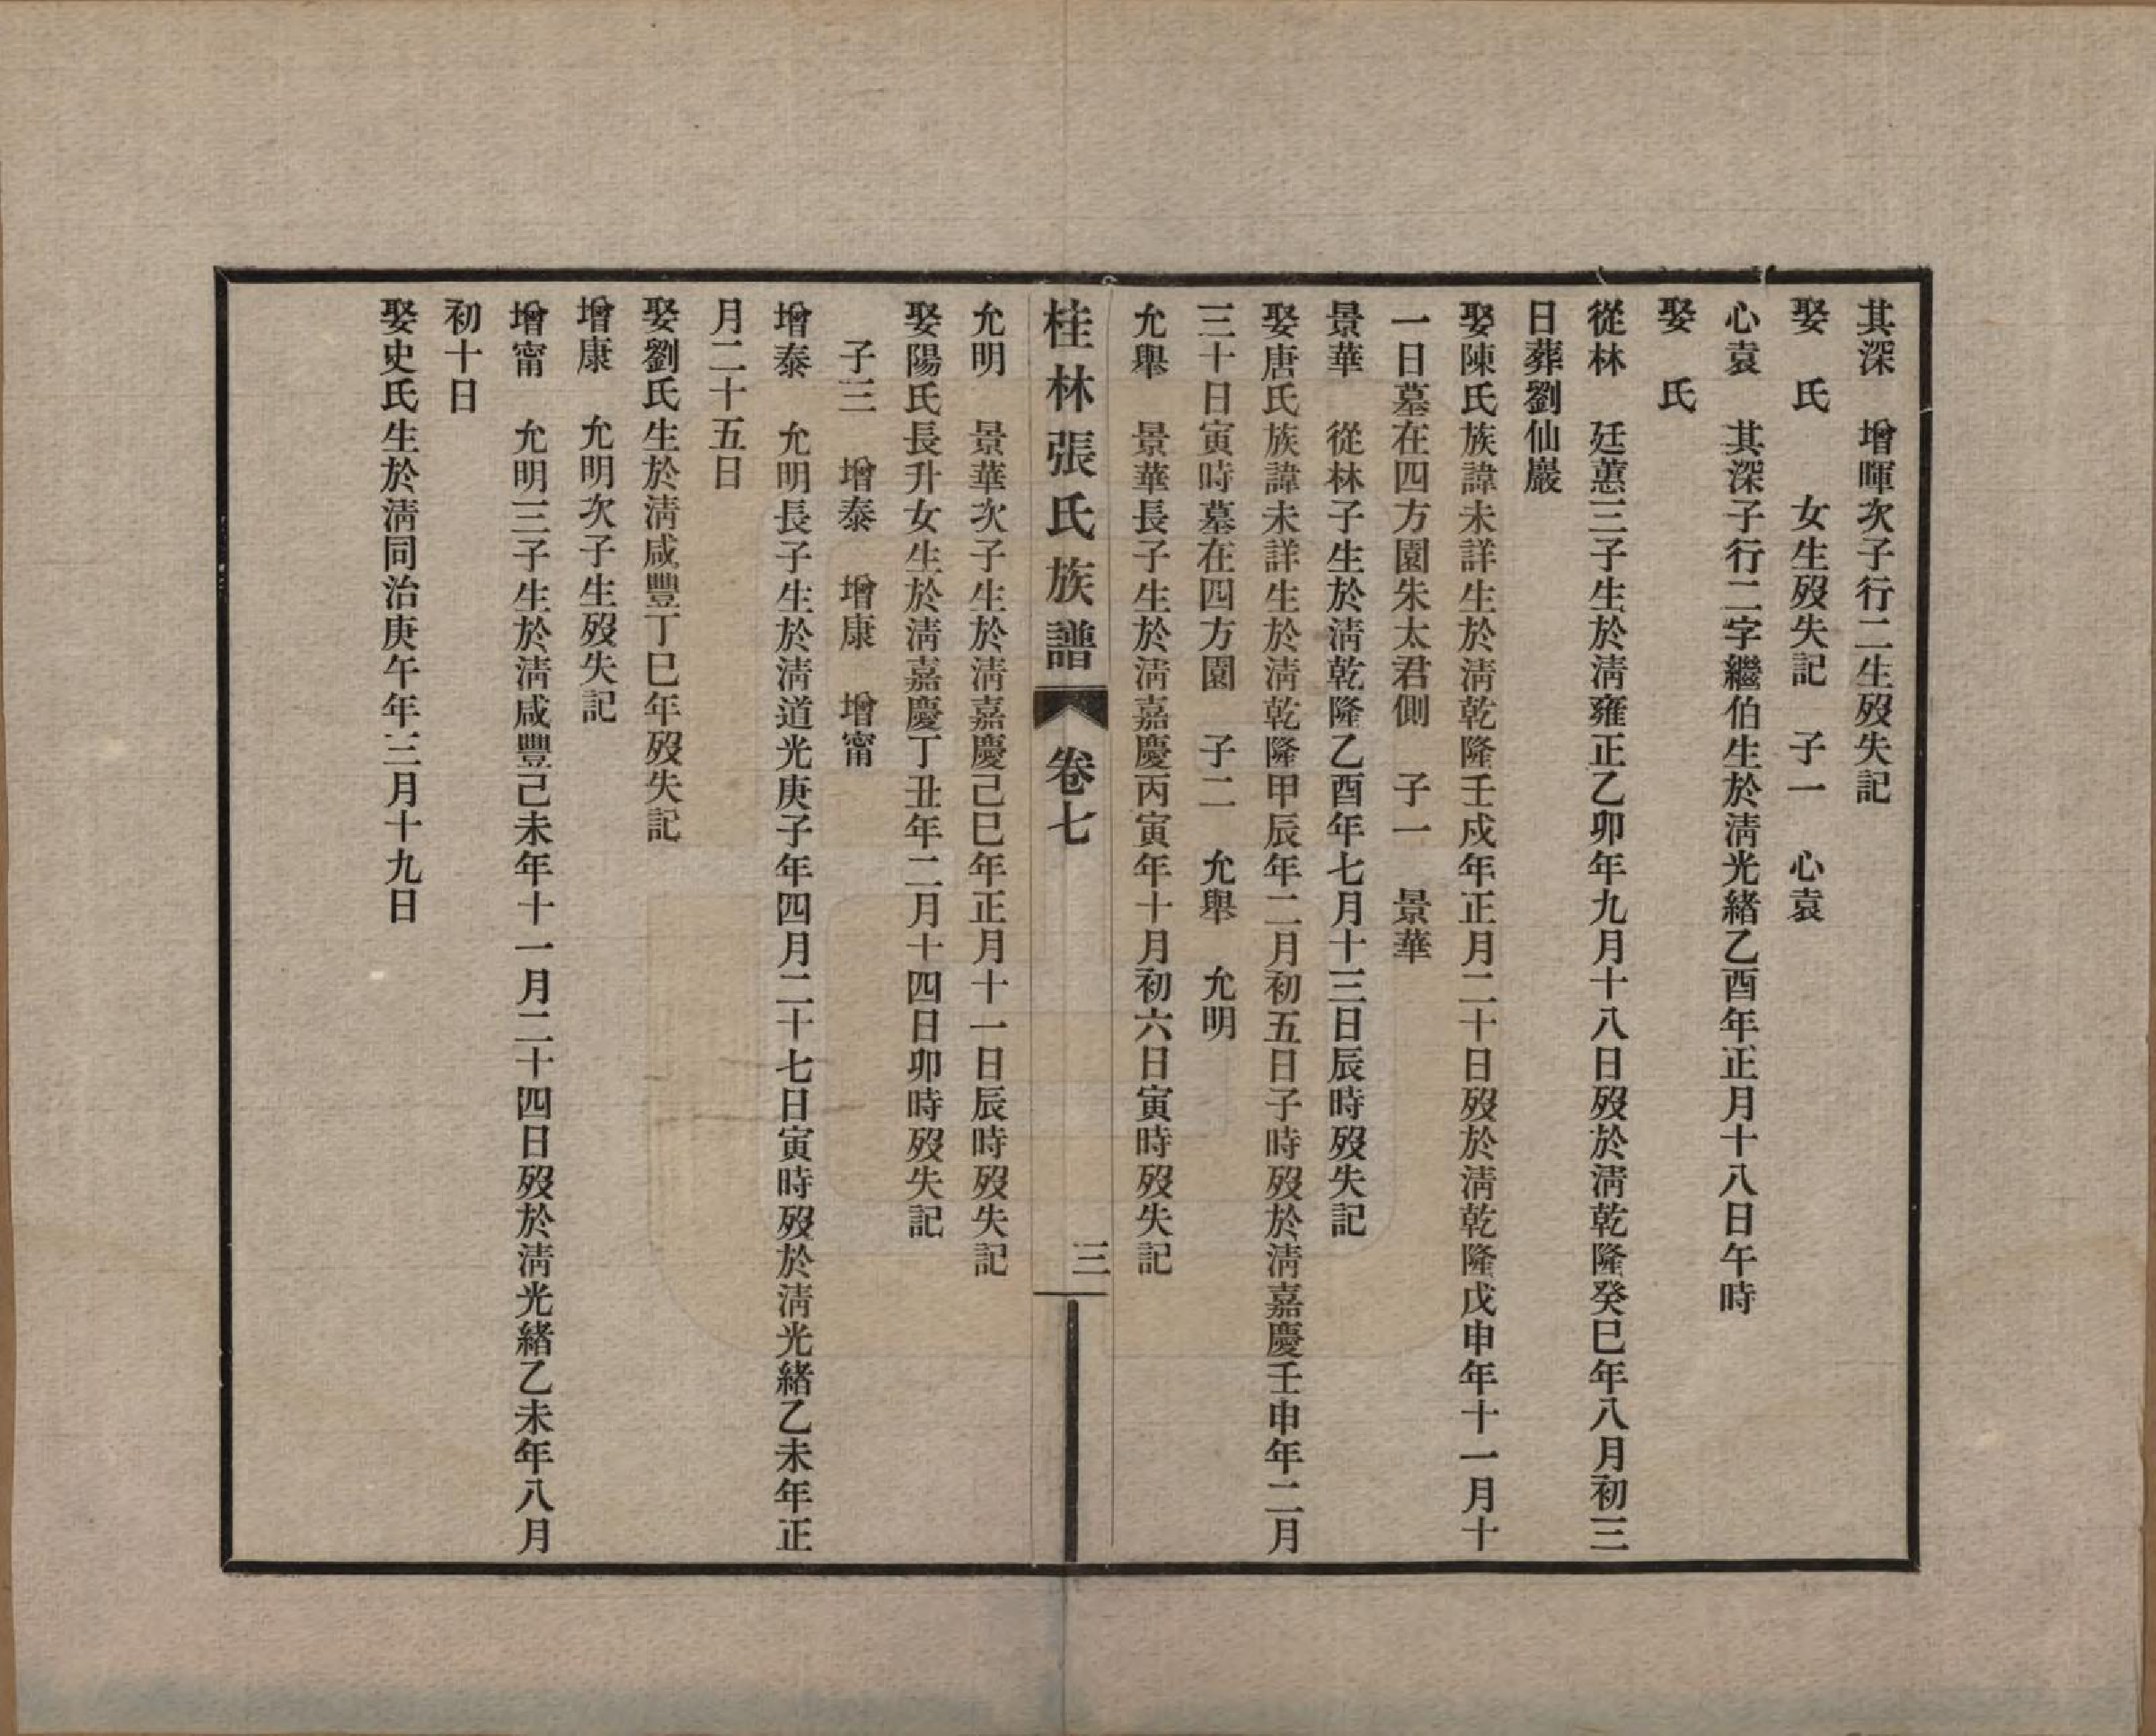 其深　增暉次子行二生歿失記
娶　氏　　女生歿失記　子一　心袁
心袁　其深子行二字繼伯生於淸光緒乙酉年正月十八日午時
娶　氏
從林　廷蕙三子生於淸雍正乙卯年九月十八日歿於淸乾隆癸巳年八月初三
日葬劉仙巖
娶陳氏族諱未詳生於淸乾隆壬戌年正月二十日歿於淸乾隆戊申年十一月十
一日墓在四方園朱太君側　子一　景華
景華　從林子生於淸乾隆乙酉年七月十三日辰時歿失記
娶唐氏族諱未詳生於淸乾隆甲辰年二月初五日子時歿於淸嘉慶壬申年二月
三十日寅時墓在四方園　子二　允舉　允明
允舉　景華長子生於淸嘉慶丙寅年十月初六日寅時歿失記
桂林張氏族譜　卷七　三
允明　景華次子生於淸嘉慶己巳年正月十一日辰時歿失記
娶陽氏長升女生於淸嘉慶丁丑年二月十四日卯時歿失記
子三　增泰　增康　增甯
增泰　允明長子生於淸道光庚子年四月二十七日寅時歿於淸光緒乙未年正
月二十五日
娶劉氏生於淸咸豐丁巳年歿失記
增康　允明次子生歿失記
增甯　允明三子生於淸咸豐己未年十一月二十四日歿於淸光緒乙未年八月
初十日
娶史氏生於淸同治庚午年三月十九日